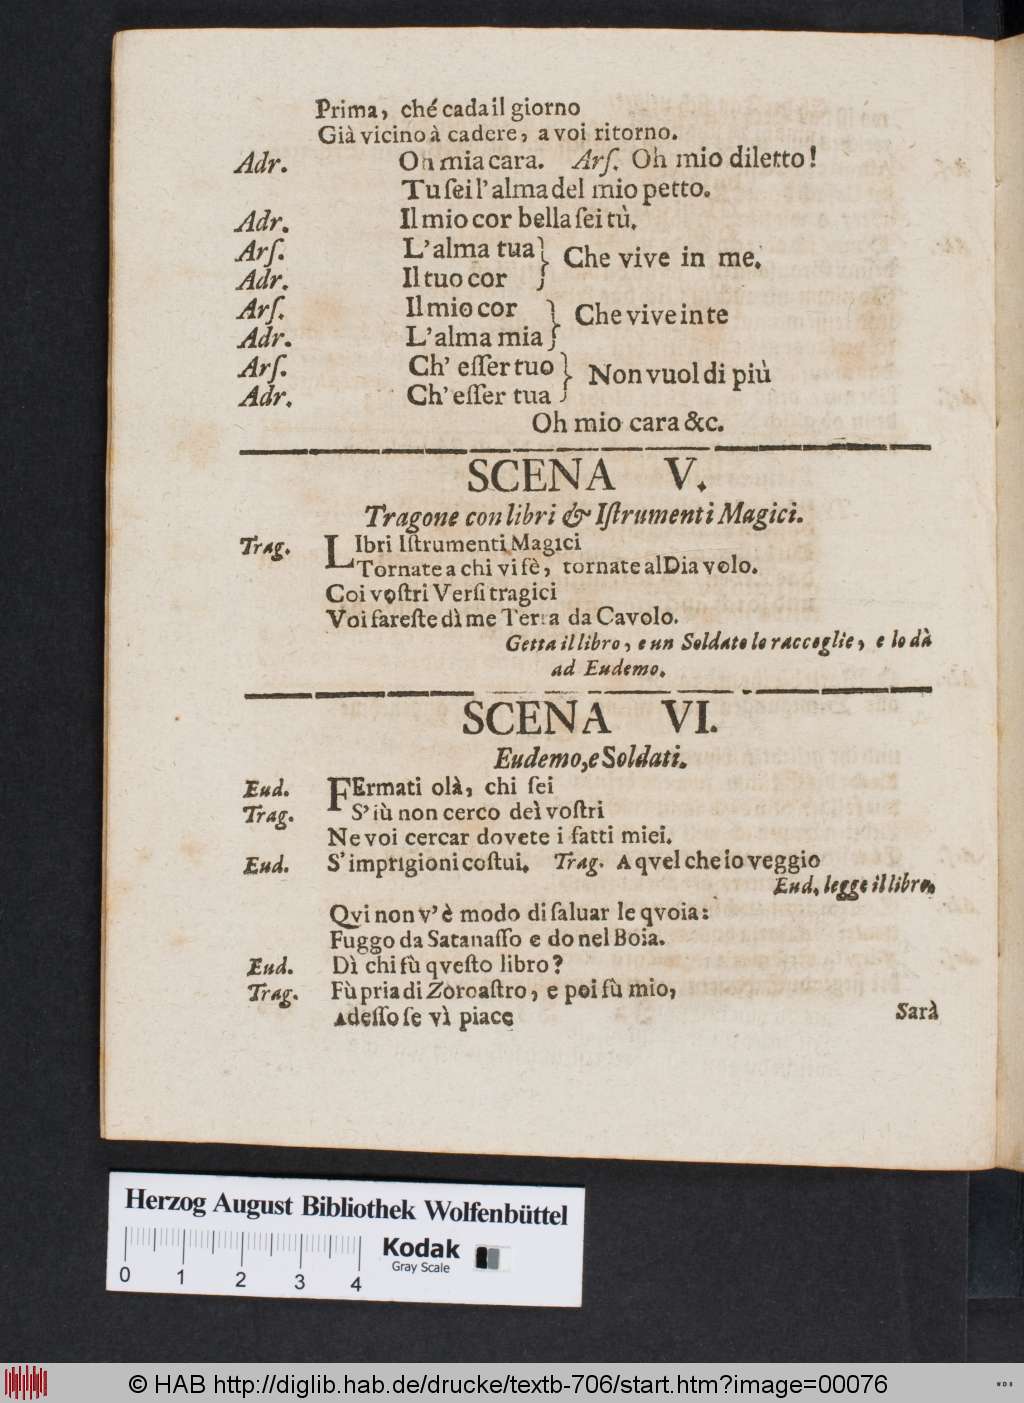 Prima, ché cada il giorno
Già vicino à cadere, a voi ritorno.
Adr. Oh mia cara. Arſ. Oh mio diletto!
Tu ſei l'alma del mio petto.
Adr. Il mio cor bella ſei tù.
Arſ. L'alma tua } Che vive in me.
Adr. Il tuo cor
Arſ. Il mio cor } Che vive in te
Adr. L'alma mia
Arſ. Ch' eſſer tuo } Non vuol di più
Adr. Ch' eſſer tua
Oh mio cara &c.
SCENA V.
Tragone con libri & Iſtrumenti Magici.
Trag. LIbri Iſtrumenti Magici
Tornate a chi vi fè, tornate al Diavolo.
Coi voſtri Verſi tragici
Voi fareſte dì me Terra da Cavolo.
Getta il libro, e un Soldato lo raccoglie, e lo dà
ad Eudemo.
SCENA VI.
Eudemo, e Soldati.
Eud. FErmati olà, chi ſei
Trag. S'iù non cerco deì voſtri
Ne voi cercar dovete i fatti miei.
Eud. S'imprigioni coſtui. Trag. A qvel che io veggio
Eud. legge il libro.
Qvi non v'è modo di ſaluar le qvoia:
Fuggo da Satanaſſo e do nel Boia.
Eud. Dì chi fù qveſto libro?
Trag. Fù pria di Zoroaſtro, e poi fù mio,
Adeſſo ſe vì piace
Sarà
Herzog August Bibliothek Wolfenbüttel
0 1 2 3 4
Kodak
Gray Scale
© HAB http://diglib.hab.de/drucke/textb-706/start.htm?image=00076